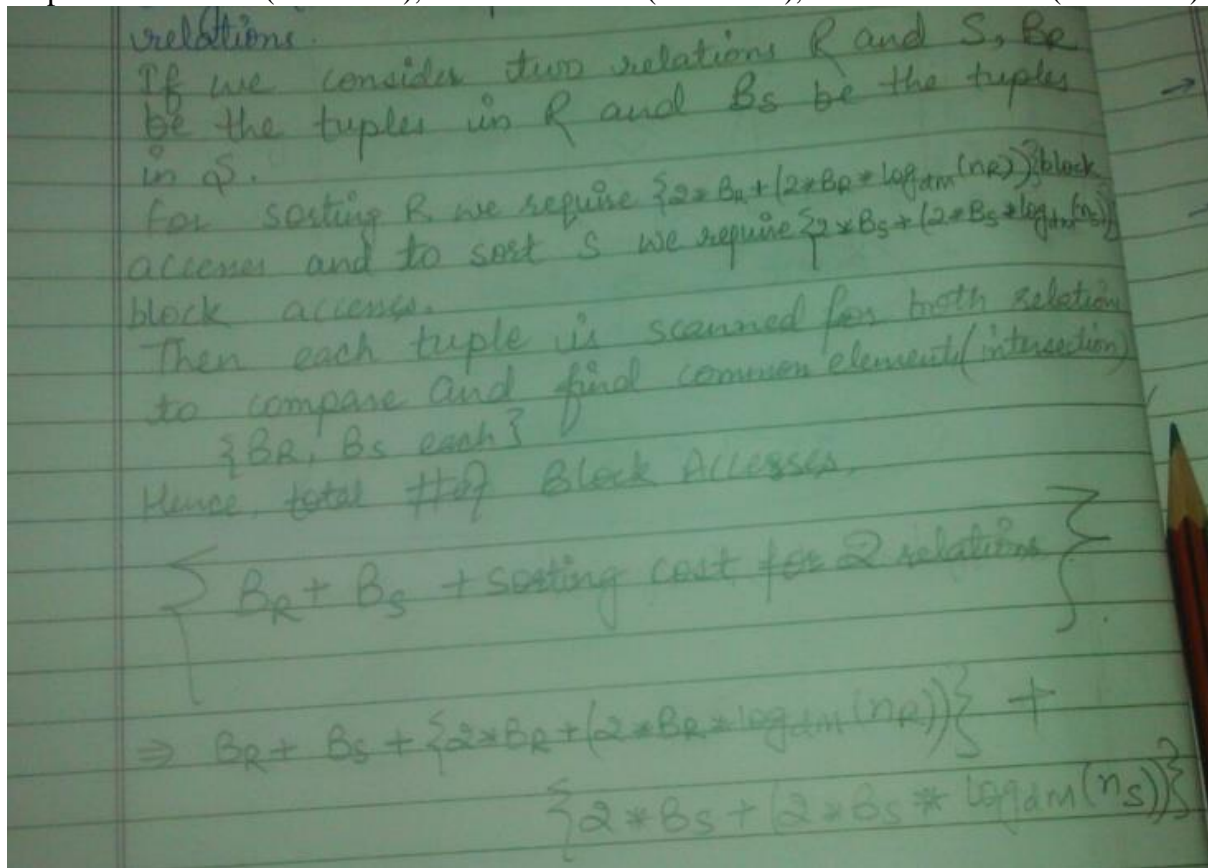 relations.
If we consider two relations R and S, BR
be the tuples in R and Bs be the tuples
in S.
For sorting R we require {2*BR+(2*BR*logdm(nR))}block
accesses and to sort S we require {2*BS+(2*BS*logdm(ns))}
block accesses.
Then each tuple is scanned for both relation
to compare and find common element(intersection)
{BR, Bs each}
Hence, total # of Block Accesses,
{ BR + BS + sorting cost for 2 relations }.
⇒ BR + BS + {2*BR+(2*BR*logdm(nR))} +
{2*BS+(2*BS*logdm(ns))}